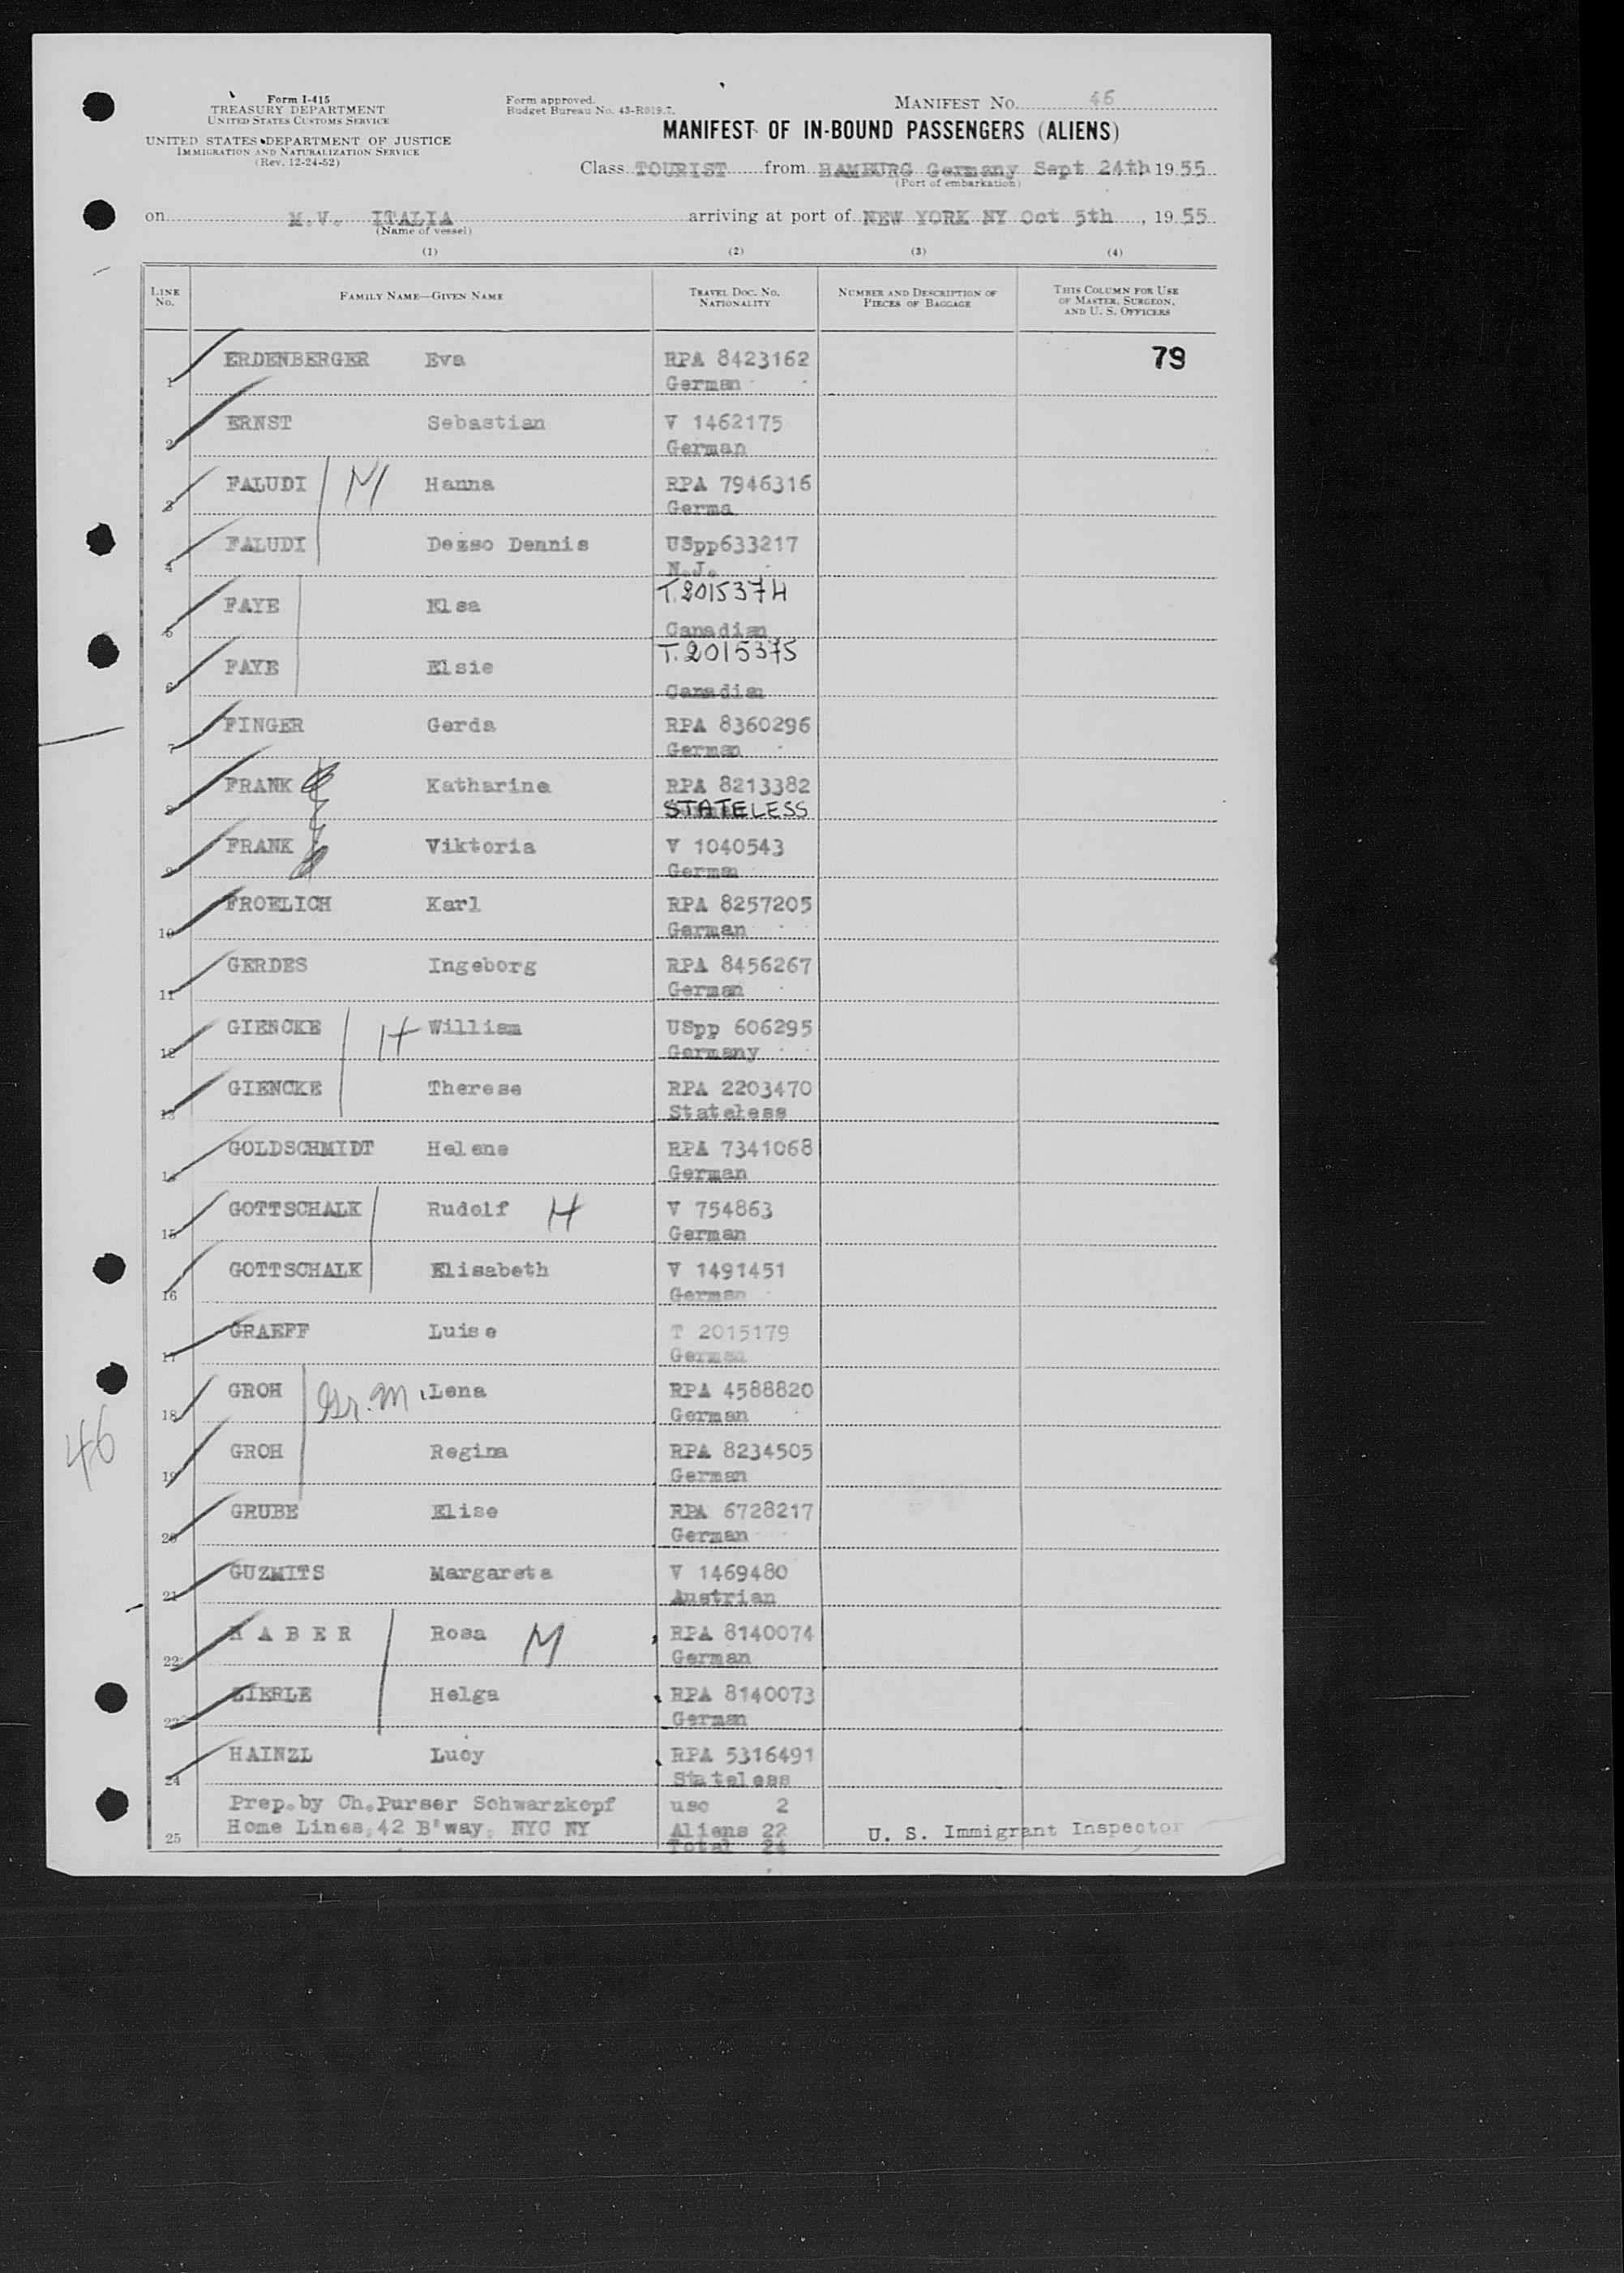 Form I-415
TREASURY DEPARTMENT
UNITED STATES CUSTOMS SERVICE
UNITED STATES DEPARTMENT OF JUSTICE
IMMIGRATION AND NATURALIZATION SERVICE
(Rev. 12-24-52)
Form approved.
Budget Bureau No. 43-R019.7.
MANIFEST NO. 46
MANIFEST OF IN-BOUND PASSENGERS (ALIENS)
Class TOURIST from HAMBURG Germany Sept 24th 1955
(Port of embarkation)
on M.V. ITALIA arriving at port of NEW YORK NY Oct 5th, 1955
(Name of vessel)
(1) (2) (3) (4)
LINE NO. FAMILY NAME—GIVEN NAME TRAVEL DOC. NO. NATIONALITY NUMBER AND DESCRIPTION OF PIECES OF BAGGAGE THIS COLUMN FOR USE OF MASTER, SURGEON, AND U. S. OFFICERS
1 ERDENBERGER Eva RPA 8423162 79
German
2 ERNST Sebastian V 1462175
German
3 FALUDI M Hanna RPA 7946316
Germa
4 FALUDI Dezso Dennis USpp633217
N.J.
5 FAYE Elsa T.2015374
Canadian
6 FAYE Elsie T.2015375
Canadian
7 FINGER Gerda RPA 8360296
German
8 FRANK Katharine RPA 8213382
STATELESS
9 FRANK Viktoria V 1040543
German
10 FROELICH Karl RPA 8257205
German
11 GERDES Ingeborg RPA 8456267
German
12 GIENCKE H William USpp 606295
Germany
13 GIENCKE Therese RPA 2203470
Stateless
14 GOLDSCHMIDT Helene RPA 7341068
German
15 GOTTSCHALK Rudolf H V 754863
German
16 GOTTSCHALK Elisabeth V 1491451
German
17 GRAEFF Luise T 2015179
German
18 GROH Gr. M. Lena RPA 4588820
German
46
19 GROH Regina RPA 8234505
German
20 GRUBE Elise RPA 6728217
German
21 GUZMITS Margareta V 1469480
Austrian
22 H A B E R Rosa M RPA 8140074
German
23 ZIERLE Helga RPA 8140073
German
24 HAINZL Lucy RPA 5316491
Stateless
Prep.by Ch.Purser Schwarzkopf usc 2
25 Home Lines,42 B'way, NYC NY Aliens 22 U. S. Immigrant Inspector
Total 24